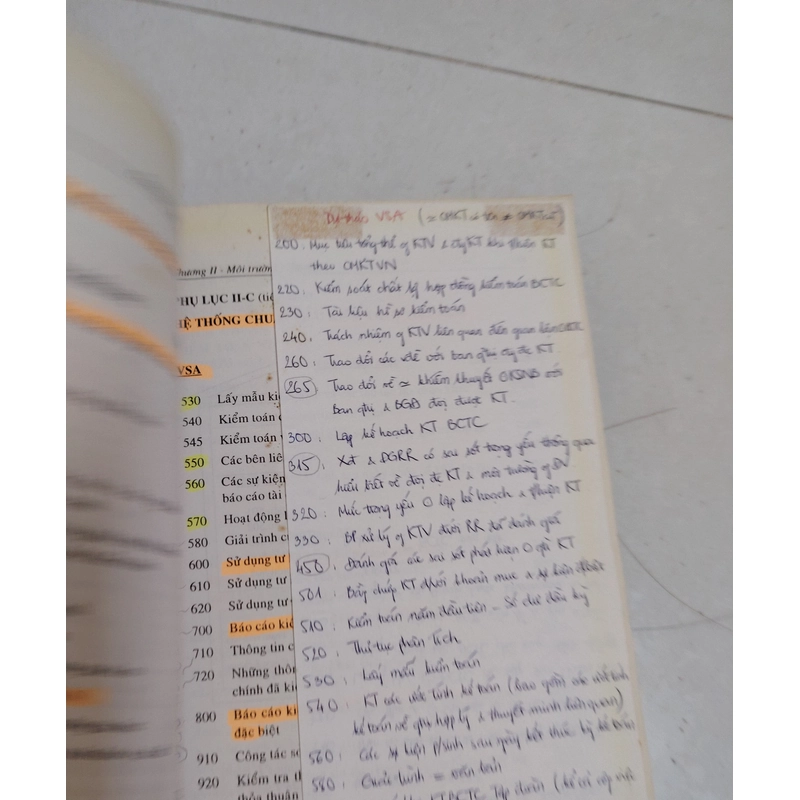 Chương II - Môi trườn
PHỤ LỤC II-C (tiế
HỆ THỐNG CHU
VSA
530 Lấy mẫu kiể
540 Kiểm toán c
545 Kiểm toán
550 Các bên liê
560 Các sự kiện
báo cáo tài
570 Hoạt động l
580 Giải trình c
600 Sử dụng tư
610 Sử dụng tư
620 Sử dụng tư
700 Báo cáo kiể
710 Thông tin c
720 Những thôn
chính đã kiể
800 Báo cáo ki
đặc biệt
910 Công tác so
920 Kiểm tra th
thỏa thuận
Dự thảo VSA
200. Mục tiêu tổng thể of KTV & cty KT khi
theo CMKTVN
220. Kiểm soát chất lg hợp đồng kiểm toán BCTC
230. Tài liệu hồ sơ kiểm toán
240. Trách nhiệm of KTV liên quan đến gian lận
260. Trao đổi các vđề với ban qtrị cty đc KT
265. Trao đổi về khiếm khuyết KSNB với
Ban qtrị & BGĐ đvị được KT.
300: Lập kế hoạch KT BCTC
315: Xđ & ĐGRR có sai sót trọng yếu thông qua
hiểu biết về đvị đc KT & môi trường of ĐV
320: Mức trọng yếu lập kế hoạch & KT
330: BP xử lý of KTV đối với RR đã đánh giá
450: Đánh giá các sai sót phát hiện KT
501: Bằng chứng KT đ/với khoản mục & sự kiện đ/biệt
510: Kiểm toán năm đầu tiên - Số dư đầu kỳ
520: Thủ tục phân tích
530: Lấy mẫu kiểm toán
540: KT các ước tính kế toán (bao gồm các ước tính
kế toán về gtrị hợp lý & thuyết minh liên quan)
560: Các sự kiện p/sinh sau ngày kết thúc kỳ kế toán
580: Giải trình = văn bản